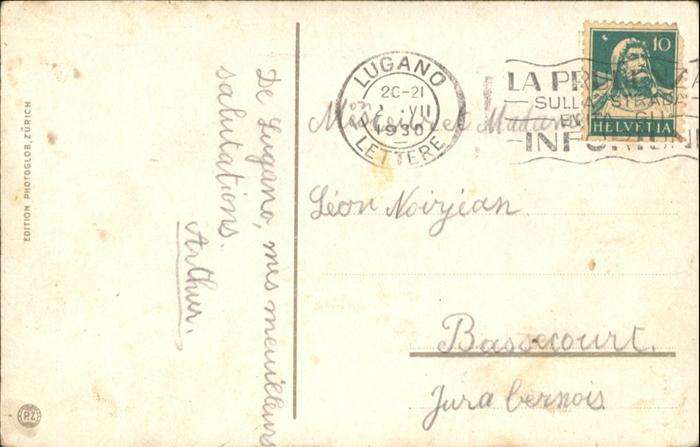 EDITION PHOTOGLOB, ZÜRICH
PZ
De Lugano, mes meuilleurs
salutations.
Arthur.
LUGANO
20-21
2.VII
1930
LETTERE
LA
SULLA STRADA
10
HELVETIA
Monsieur et Madame
Léon Noirjean.
Bassecourt.
Jura bernois